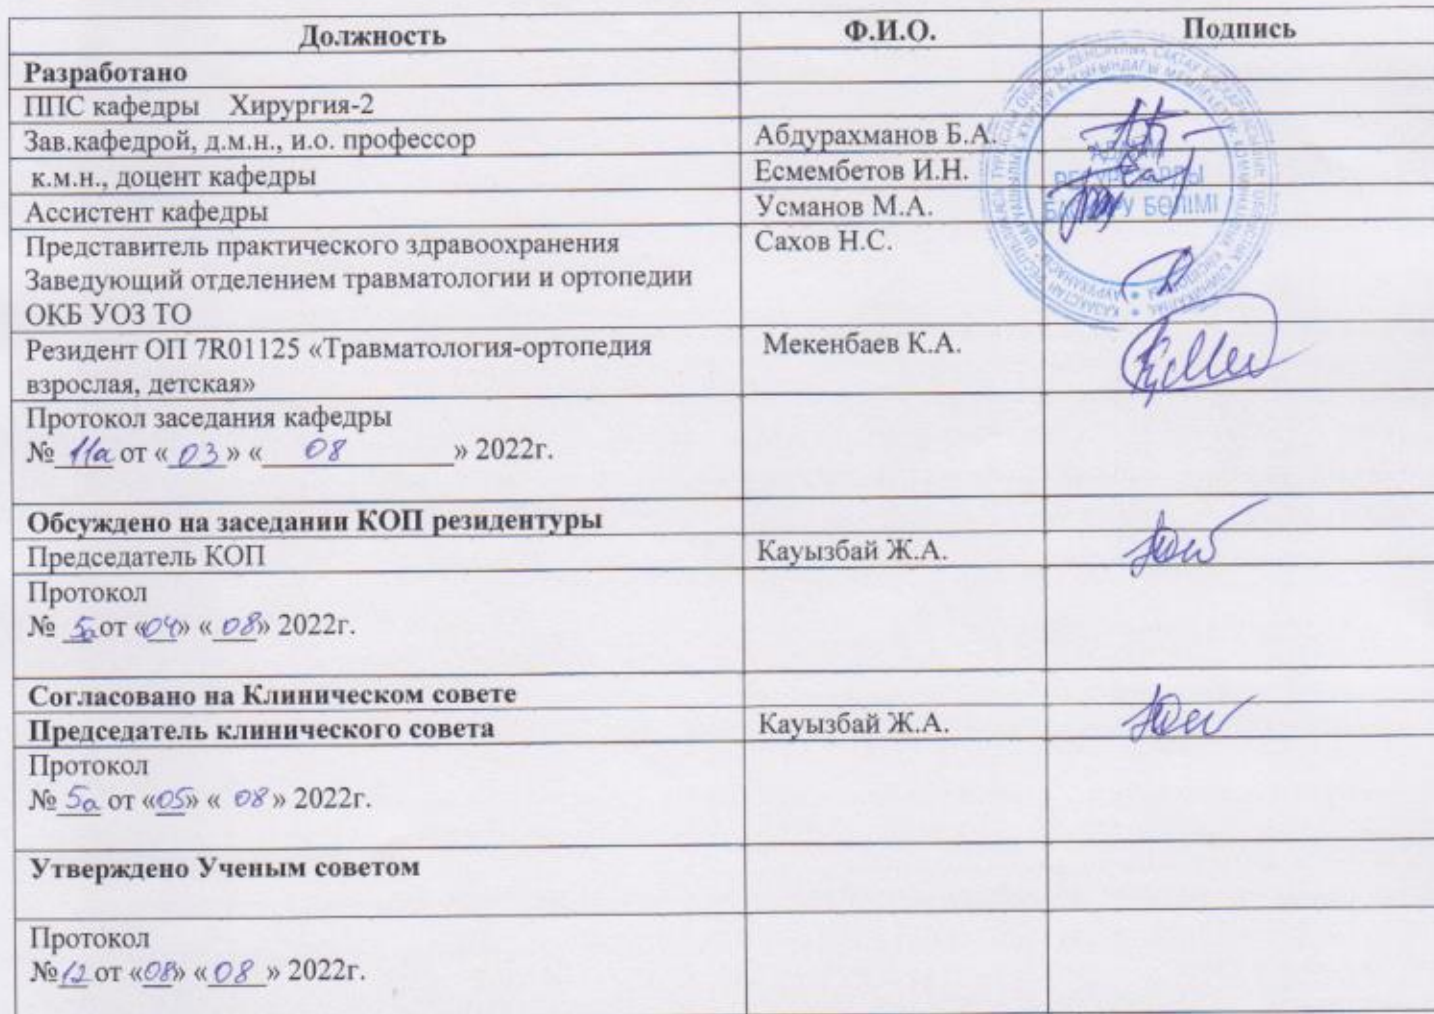 Должность Ф.И.О. Подпись
Разработано
ППС кафедры Хирургия-2
Зав.кафедрой, д.м.н., и.о. профессор Абдурахманов Б.А.
к.м.н., доцент кафедры Есмембетов И.Н.
Ассистент кафедры Усманов М.А.
Представитель практического здравоохранения Сахов Н.С.
Заведующий отделением травматологии и ортопедии
ОКБ УОЗ ТО
Резидент ОП 7R01125 «Травматология-ортопедия Мекенбаев К.А.
взрослая, детская»
Протокол заседания кафедры
№ 11а от «03» «08» 2022г.
Обсуждено на заседании КОП резидентуры
Председатель КОП Кауызбай Ж.А.
Протокол
№ 5а от «04» «08» 2022г.
Согласовано на Клиническом совете
Председатель клинического совета Кауызбай Ж.А.
Протокол
№ 5а от «05» «08» 2022г.
Утверждено Ученым советом
Протокол
№12 от «08» «08» 2022г.
БӨЛІМІ